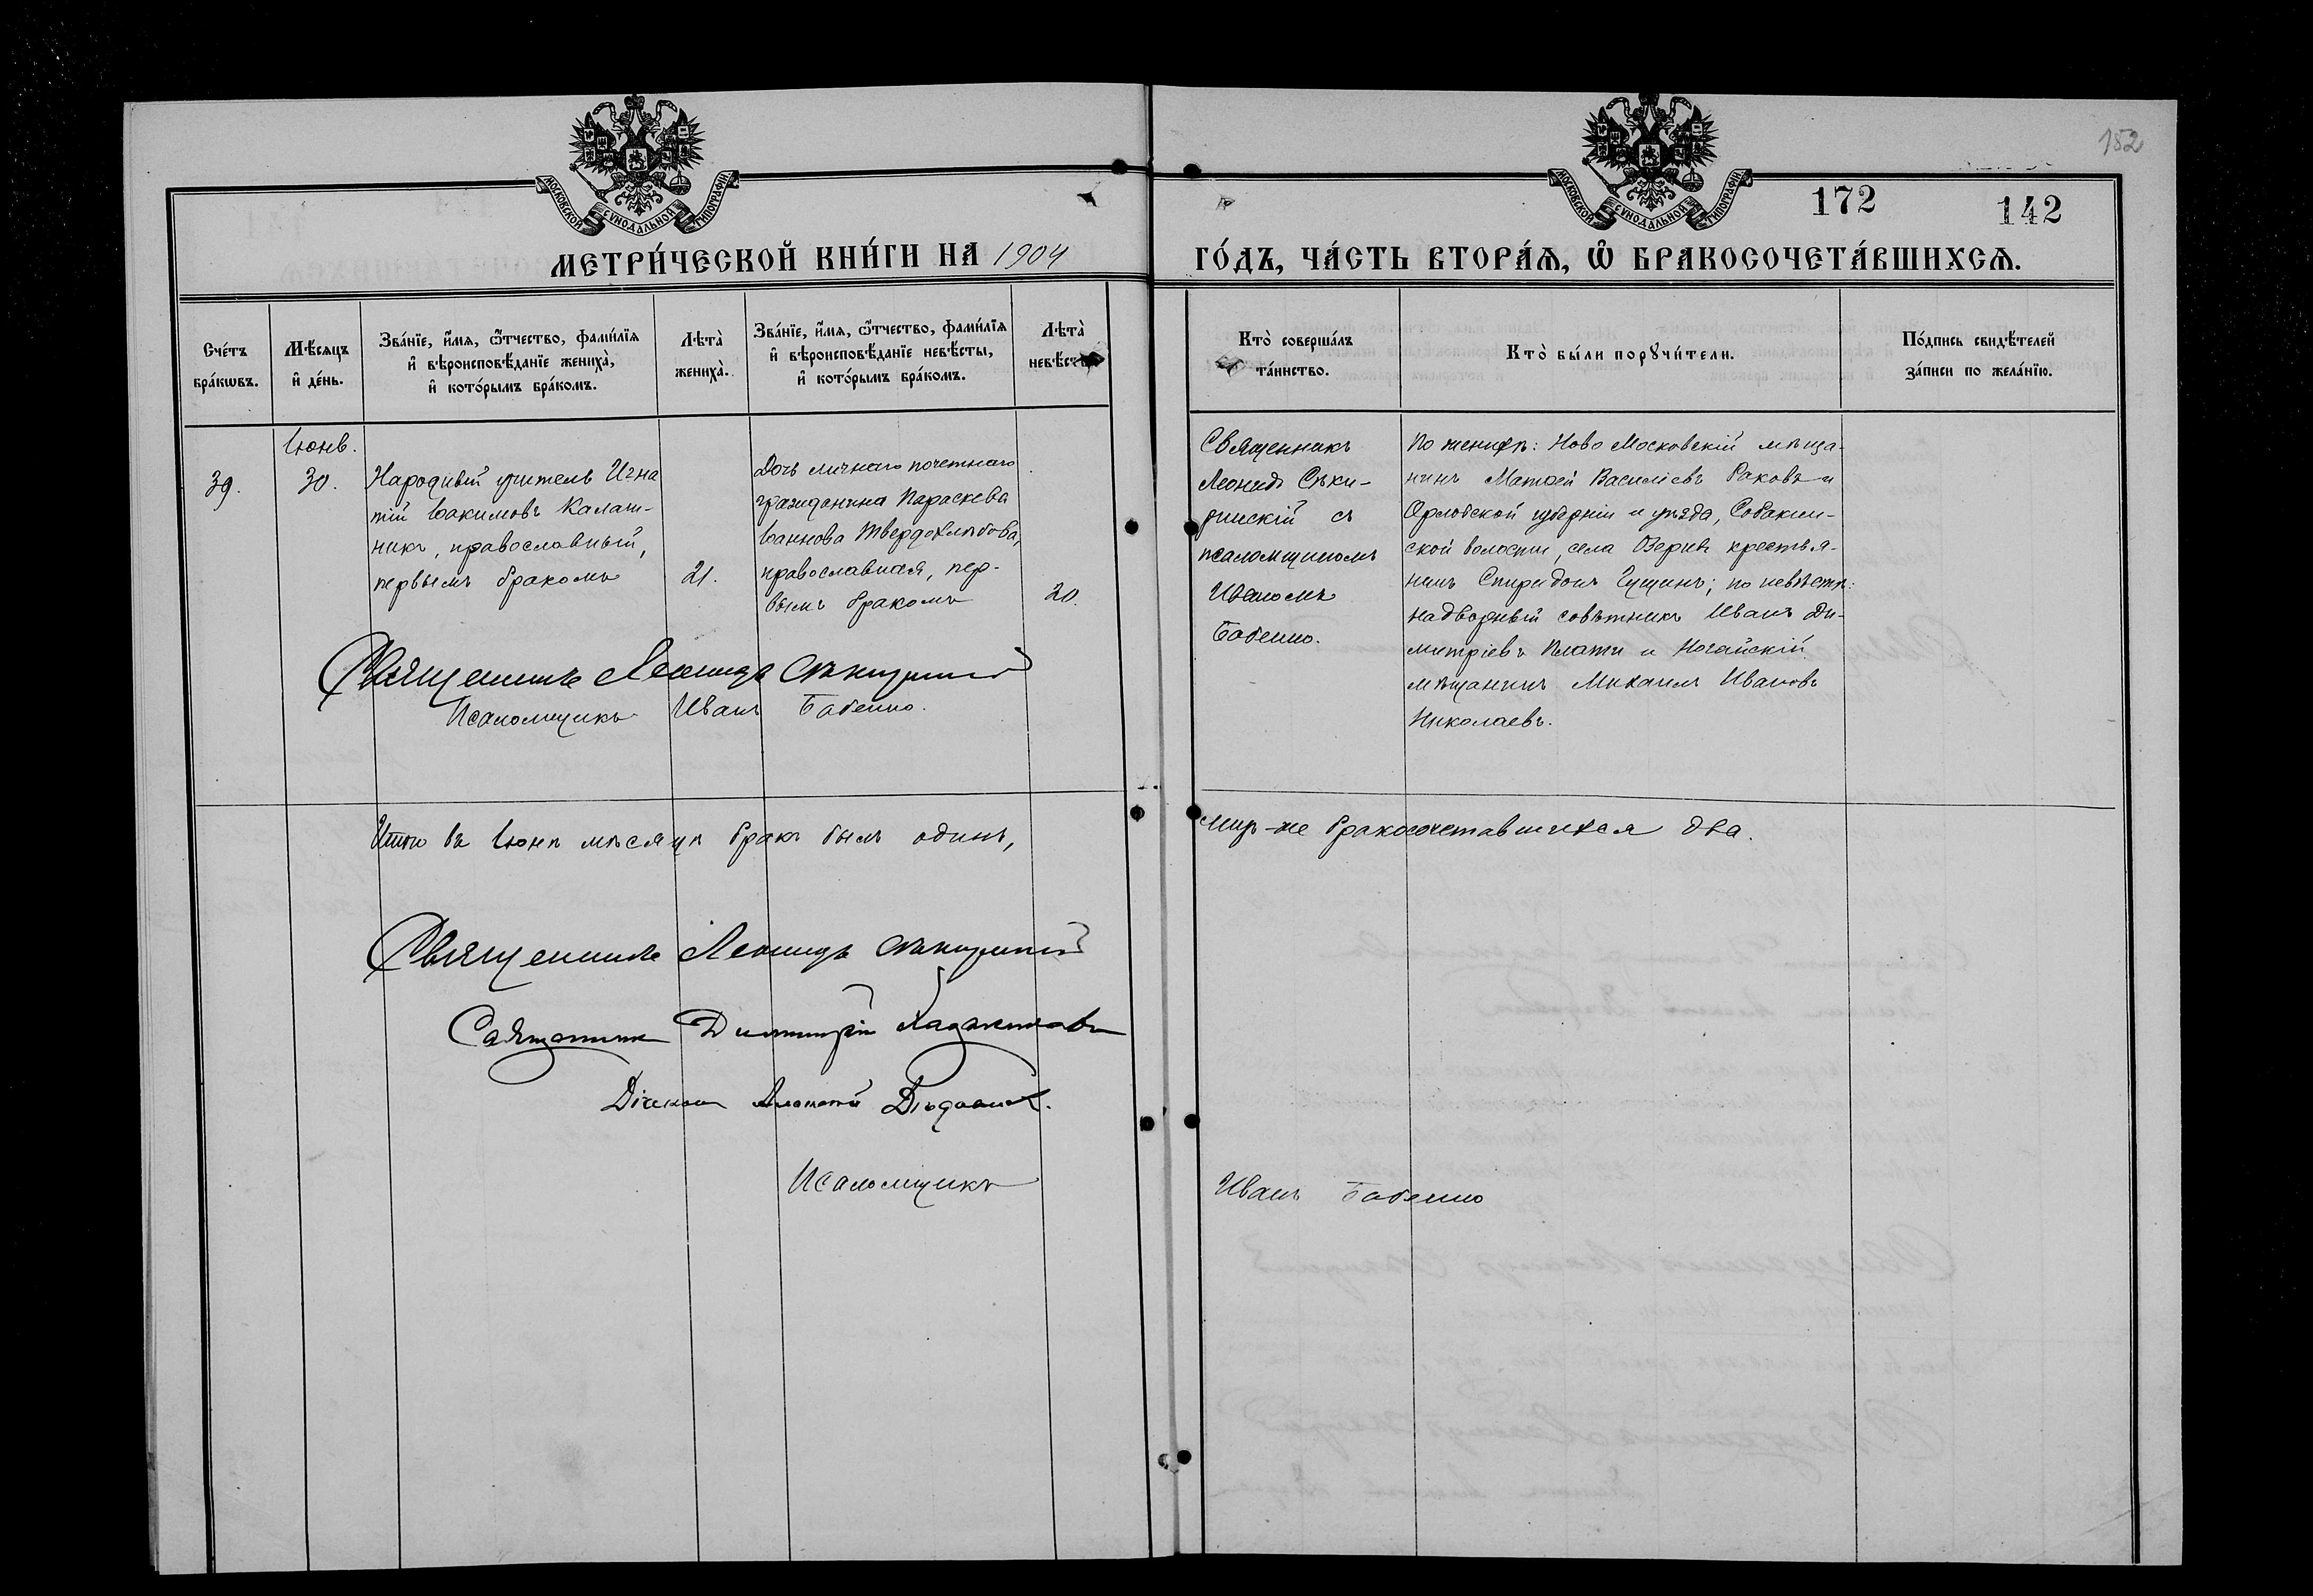 152
172
142
МОСКОВСКОЙ СѴНОДАЛЬНОЙ ТИПОГРАФІИ
МОСКОВСКОЙ СѴНОДАЛЬНОЙ ТИПОГРАФІИ
МЕТРИ́ЧЕСКОЙ КНИ́ГИ НА 1904
ГО́ДЪ, ЧА́СТЬ ВТОРА́Ѧ, Ѡ҆ БРАКОСОЧЕТА́ВШИХСѦ.
Сче́тъ
бра́кѡвъ.
Мѣ́сяцъ
и҆ де́нь.
Зва́нїе, и҆́мѧ, ѻ҆́тчество, фами́лїѧ
и҆ вѣроисповѣ́данїе жениха̀,
и҆ кото́рымъ бра́комъ.
Лѣта̀
жениха̀.
Зва́нїе, и҆́мѧ, ѻ҆́тчество, фами́лїѧ
и҆ вѣроисповѣ́данїе невѣ́сты,
и҆ кото́рымъ бра́комъ.
Лѣта̀
невѣ́сты
Кто̀ соверша́лъ
та́инство.
Кто̀ бы́ли порꙋчи́тели.
По́дпись свидѣ́телей
за́писи по жела́нїю.
39.
Іюнь.
30.
Народный учитель Игна
тій Іоакимовъ Калаш-
никъ, православный,
первымъ бракомъ
21.
Дочь личнаго почетнаго
гражданина Параскева
Іоаннова Твердохлѣбова,
православная, пер-
вымъ бракомъ
20.
Священникъ
Леонидъ Сѣки-
ринскій съ
псаломщикомъ
Иваномъ
Бабенко.
По женихѣ: Ново Московскій мѣща-
нинъ Матѳей Василіевъ Раковъ и
Орловской губерніи и уѣзда, Собакин-
ской волости, села Озеркъ крестья-
нинъ Спиридонъ Гущинъ; по невѣстѣ:
надворный совѣтникъ Иванъ Ди-
митріевъ Плати и Ногайскій
мѣщанинъ Михаилъ Ивановъ
Николаевъ.
Священникъ Леонидъ Сѣкиринскій
Псаломщикъ Иванъ Бабенко.
Итого въ Іюнѣ мѣсяцѣ бракъ былъ одинъ,
лицъ-же бракосочетавшихся два.
Священникъ Леонидъ Сѣкиринскій
Священникъ Димитрій
Діаконъ Алексѣй
Псаломщикъ
Иванъ Бабенко